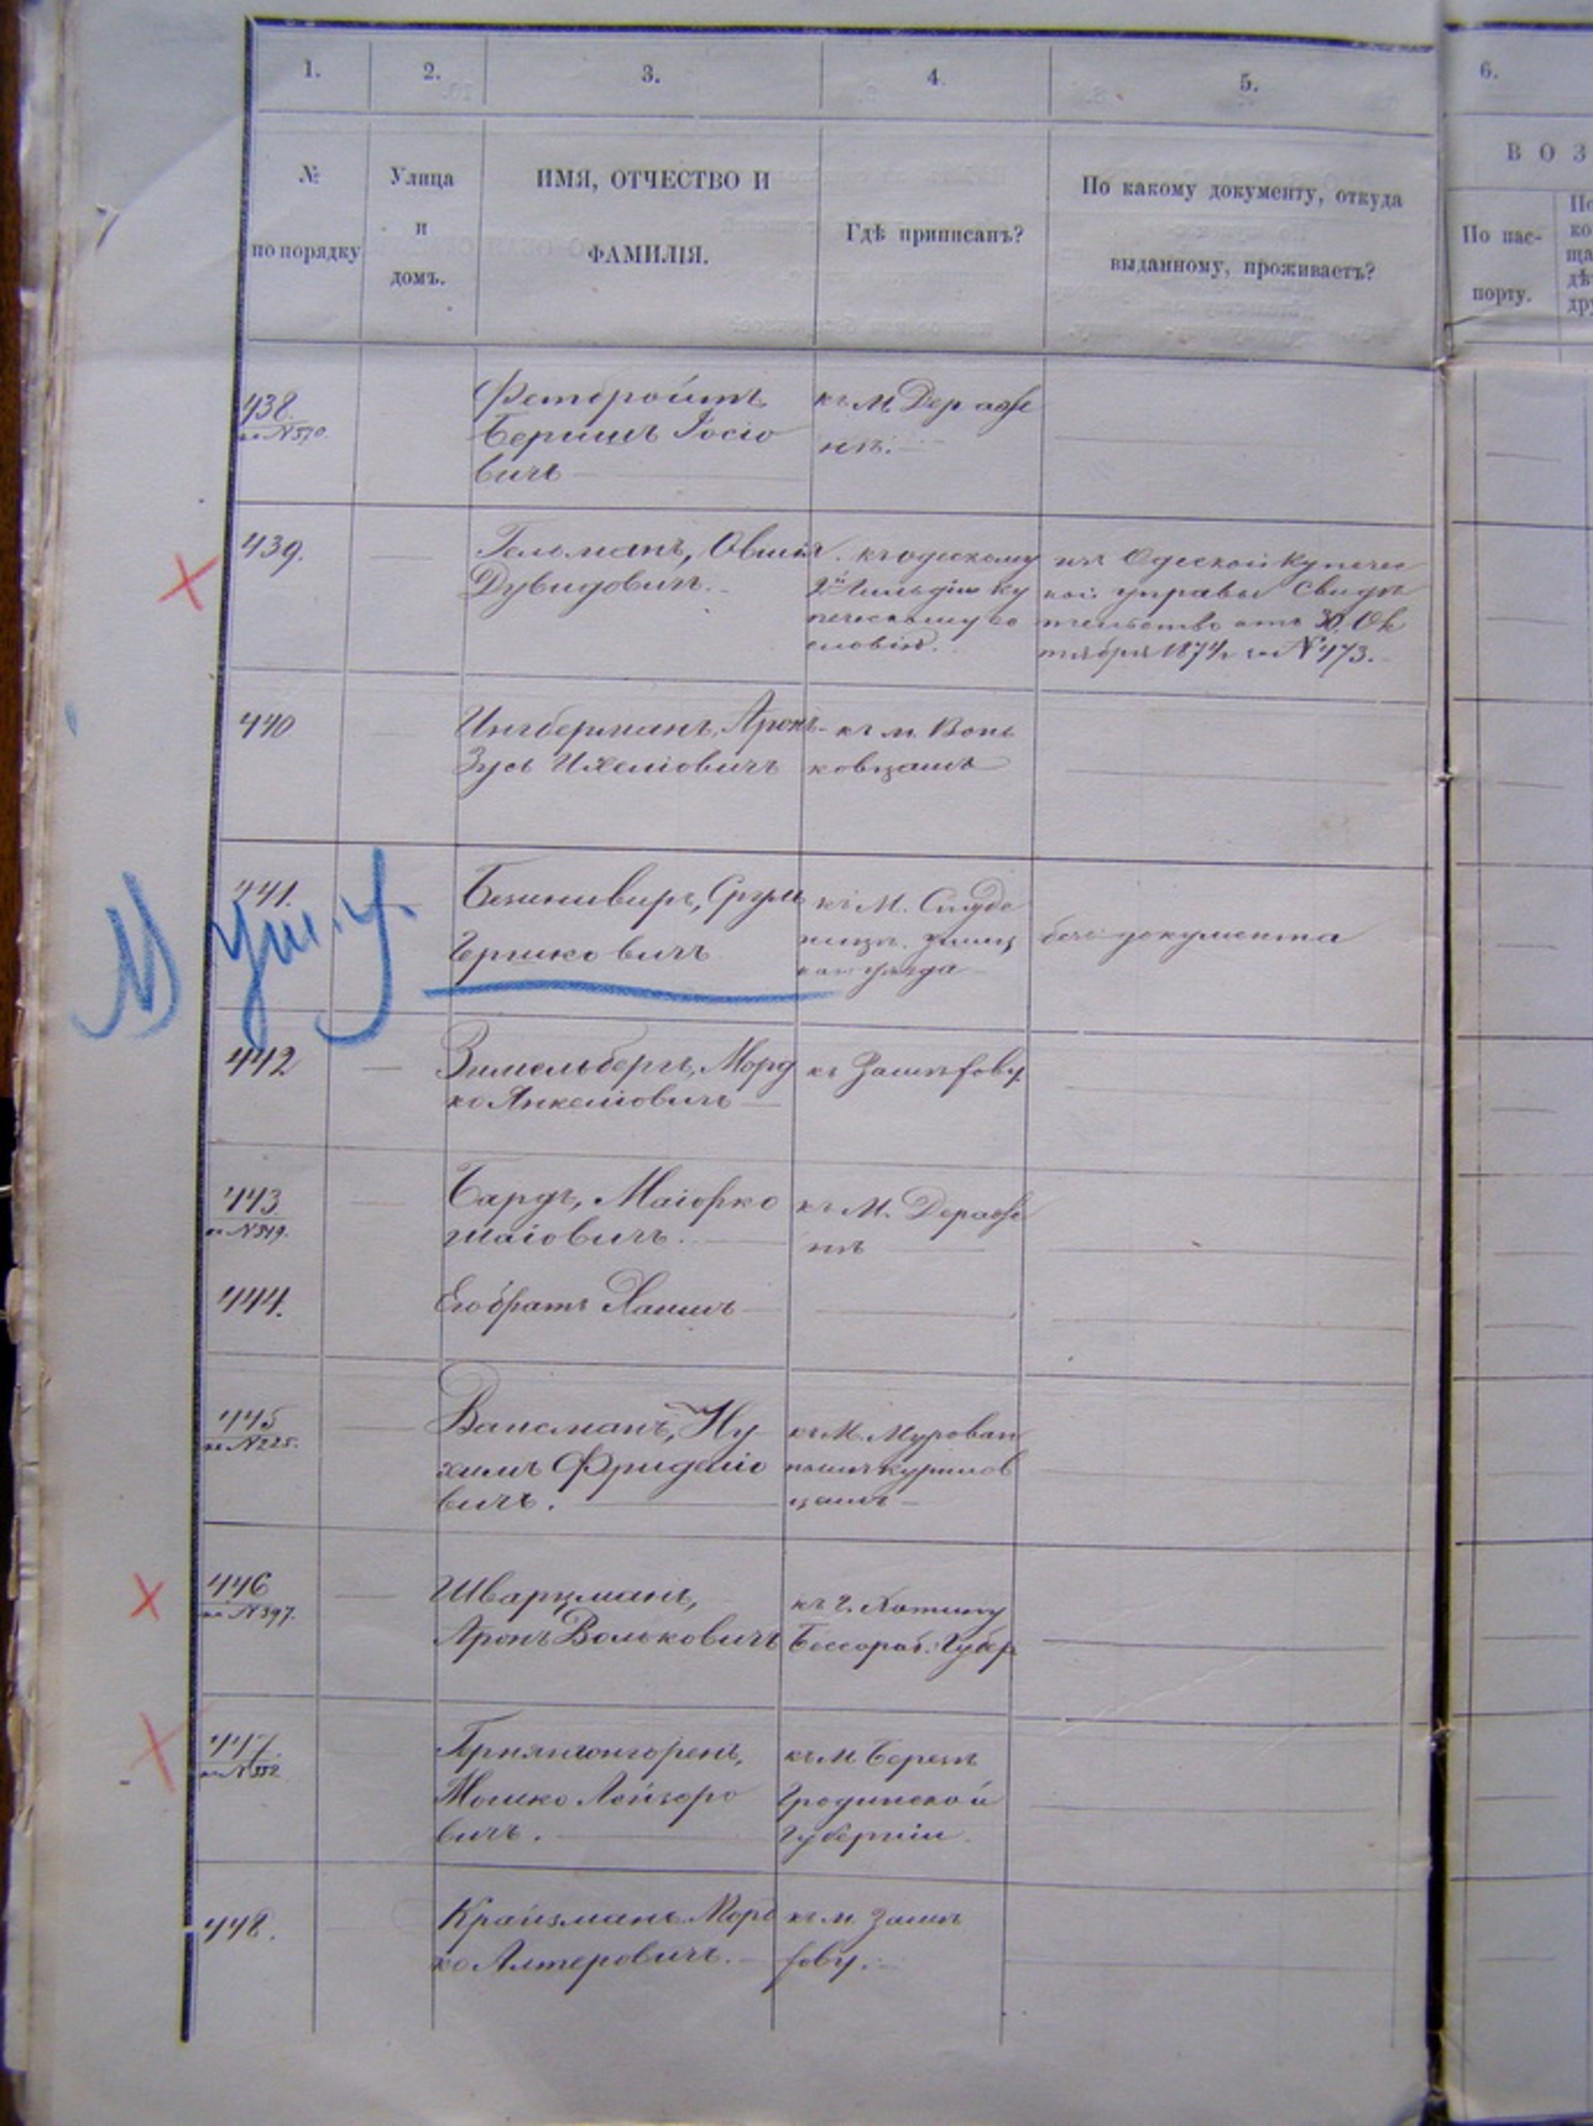 1. 2. 3. 4. 5. 6.
№ по порядку
Улица и домъ.
ИМЯ, ОТЧЕСТВО И
ФАМИЛІЯ.
Гдѣ приписанъ?
По какому документу, откуда
выданному, проживаетъ?
ВОЗ
По пас-
порту.
438.
Беришъ Іосіо
вичъ
къ М. Дераж
нѣ.
439.
Гельманъ, Овшія
Дувидовичъ.
къ одескому
2й Гильдіи ку
печескому со
словію.
изъ Одеской купечес
кой управы свидѣ
тельство отъ 30 Ок
тября 1874 г за №473.
440
Ингберманъ, Аронъ
Зусь Ихеліовичъ
къ м. Вонь
ковцамъ
441.
Сруль
Гершковичъ
къ М. Студе
ницѣ Ушиц
каго уѣзда
безъ документа
442
Зимельбергъ, Морд
ко Янкеліовичъ
къ Заинькову
443
за №319.
Бардъ, Маіорко
Шаіовичъ.
къ М. Деражн
нѣ
444.
Его братъ Хаимъ
445
за №225.
Вайсманъ, Ну
химъ Фриделіо
вичъ.
къ М. Мурован
нымъ курилов
цамъ
446
за №397.
Шварцманъ,
Аронъ Вольковичъ
къ г. Хотину
Бессораб. Губер
447.
за №352
Мошко Лейзоро
вичъ.
къ М. Березѣ
Гродненской
губерніи
448.
Крайзманъ Морд
ко Алтеровичъ.
къ м. Зинь
кову.